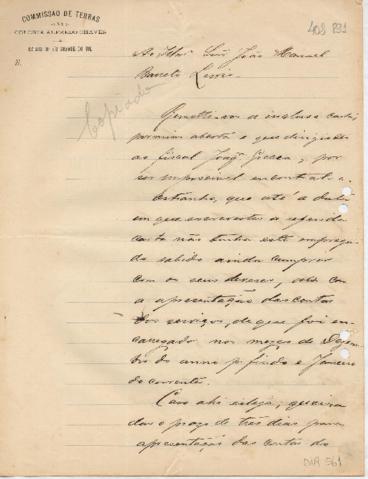 COMMISSÃO DE TERRAS
COLONIA ALFREDO CHAVES
ESTADO DO RIO GRANDE DO SUL
N.
Copiado
Ao Illmo Snr João Manoel
Barreto
Remetto-vos a inclusa carta,
por mim aberta e que dirigistes
ao fiscal João, por
ser impossivel encontral-o.
Estranho, que até a data
em que escrevestes a referida
carta não tenha este emprega-
do sabido ainda cumprir
com os seus deveres, com
a apresentação das contas
dos serviços, de que foi en-
carregado nos mezes de Dezem-
bro do anno p. findo e Janeiro
do corrente.
Caso ahi esteja, queira
dar o prazo de três dias para
apresentação das contas do
DIA 561